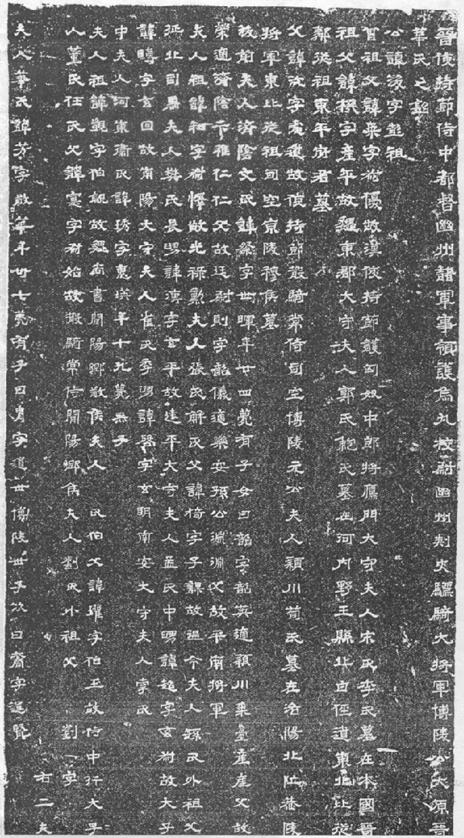 晉使持節侍中都督幽州諸軍事領護烏丸校尉幽州刺史驃騎大將軍博陵公大原晉
華氏之銘
公諱浚字彭祖
曾祖父諱柔字叔優故漢使持節護匈奴中郎將鴈門大守夫人宋氏李氏墓在本國晉
祖父諱機字產平故魏東郡大守夫人郭氏鮑氏墓在河內野王縣北白徑道東北比從
鄰從祖東平府君墓
父諱沈字處道故使持節散騎常侍司空博陵元公夫人潁川荀氏墓在洛陽北邙恭陵
將軍東比從祖司空京陵穆侯墓
故前夫人濟陰文氏諱粲字世暉年廿四薨有子女曰韶字韶英適潁川棗臺產產父故
榮適濟陰卞稚仁仁父故廷尉則字韶儀適樂安孫公淵淵父故平南將軍
夫人祖諱和字叔懌故光祿勳夫人張氏解氏父諱字子課故祖令夫人孫氏外祖父
延北司馬夫人樊氏長舅諱字玄平故建平大守夫人孟氏中舅諱超字玄叔故大子
諱疇字玄回故南陽大守夫人崔氏季舅諱字玄明南安大守夫人李氏
中夫人河東衛氏諱琇字惠瑛年十九薨無子
夫人祖諱覬字伯覦故魏尚書聞陽鄉敬侯夫人 氏伯父諱瓘字伯玉故侍中行大子
人董氏任氏父諱寔字叔始故散騎常侍聞陽鄉侯夫人劉氏外祖父 劉 字
右二夫
夫人華氏諱芳字敬華年卅七薨有子曰冑字道世博陵世子次曰裔字道賢